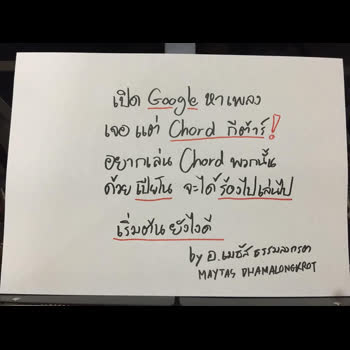 เปิด Google หาเพลง
เจอแต่ Chord กีต้าร์!
อยากเล่น Chord พวกนั้น
ด้วยเปียโน จะได้ร้องไปเล่นไป
เริ่มต้นยังไงดี
by อ.เมธัส ธรรมลงกรต
MAYTAS DHAMALONGKROT